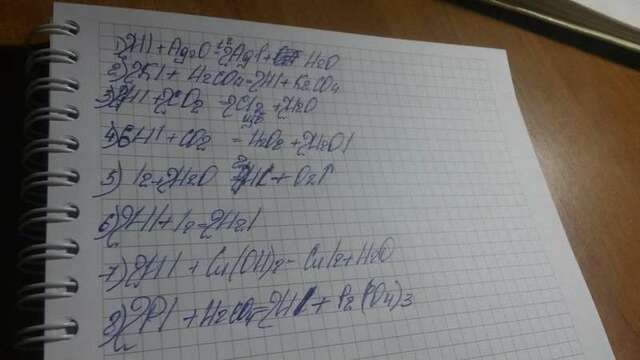 1) 2HI + Ag2O = 2AgI + H2O
2) 2KI + H2CO4 = 2HI + K2CO4
3) + 2CO2 = 2CI2 + 2H2O
4) 6HI + CO2 = H2O2 + 2H2OI
5) I2 + 2H2O = + O2I
6) 2HI + I2 = 2H2I
7) 2HI + Cu(OH)2 = CuI2 + H2O
8) 2PI + H2CO4 = 2HI + P2(PO4)3